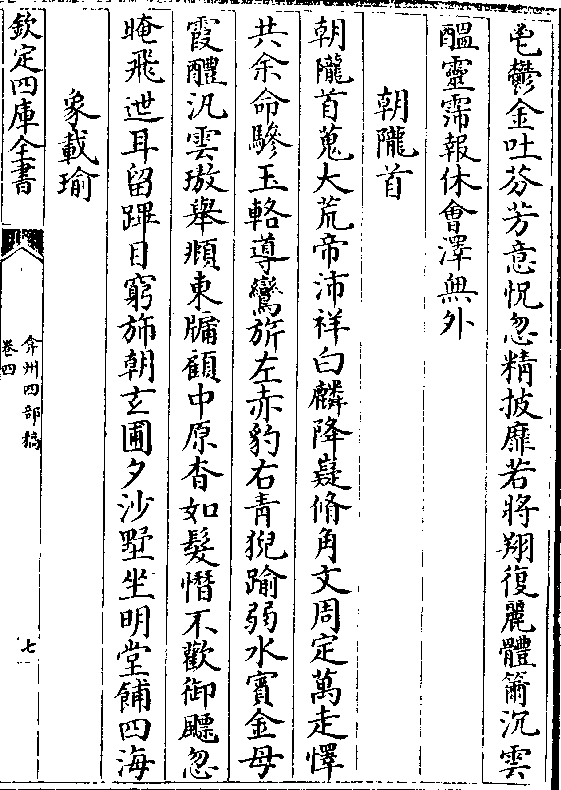 皀鬱金吐芬芳意怳忽精披靡若將翔復麗體簫沉雲
醖靈霈報休會澤無外
朝隴首
朝隴首蒐大荒帝沛祥白麟降嶷脩角文周定萬走懌
共余命驂玉輅導鸞旂左赤豹右青猊踰弱水賓金母
霞醴汎雲璈舉頫東牖顧中原杳如髮憯不歡御飀忽
晻飛迣耳留蹕目窮斾朝玄圃夕沙墅坐明堂餔四海
象載瑜
欽定四庫全書
弇州四部稿
卷四
七